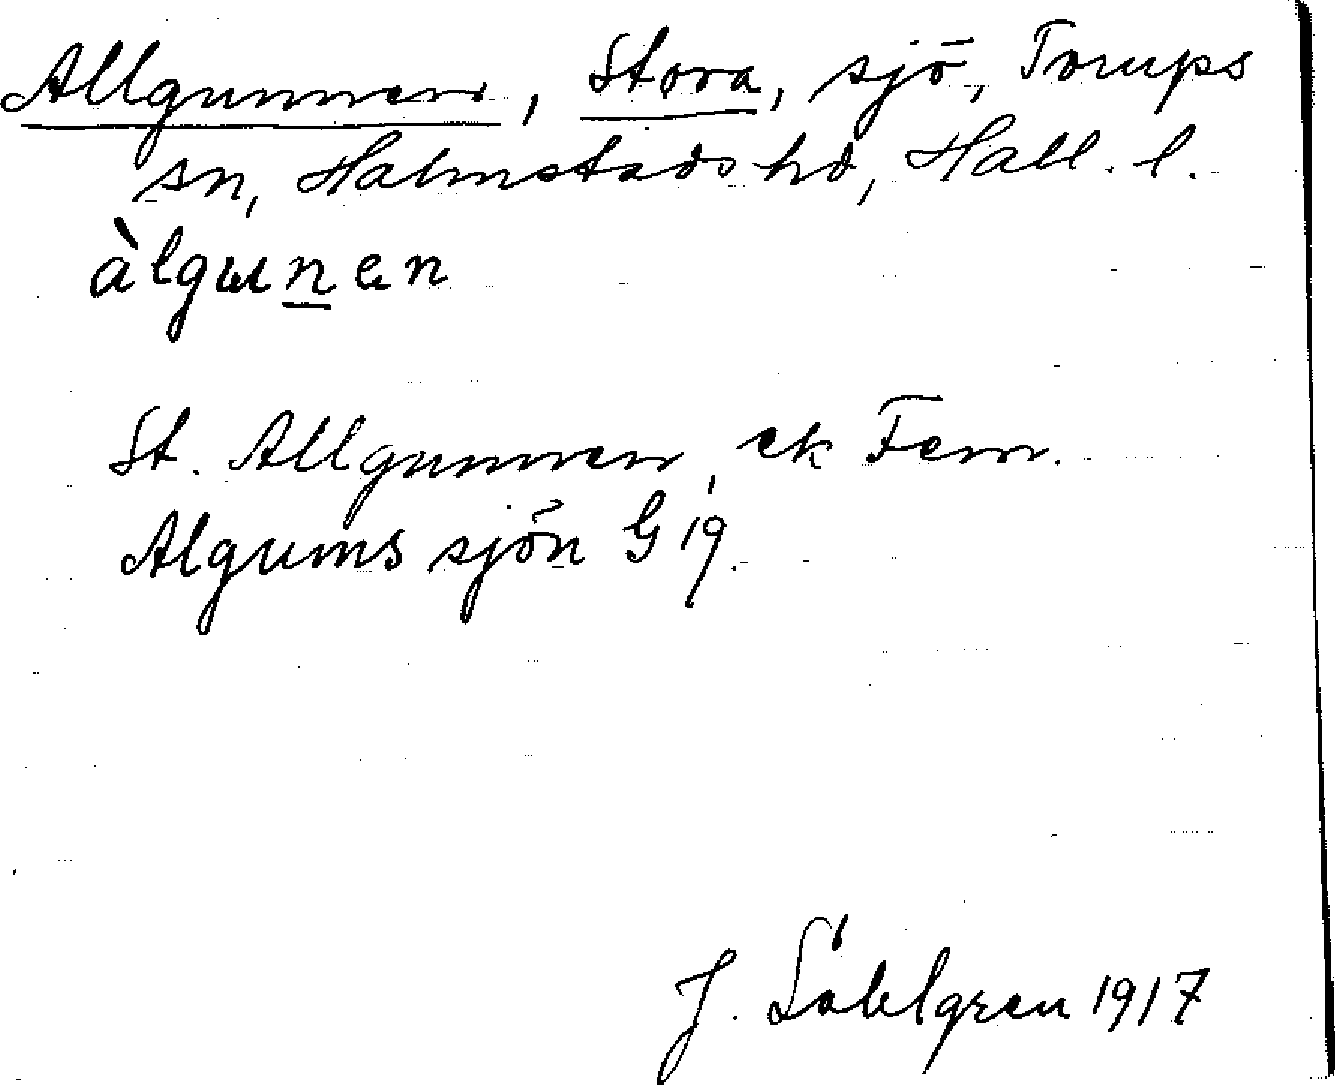 Allgunnen, Stora, sjö, Torups
sn, Halmstads hd, Hall. l.
àlgunen
St. Allgunnen, ek Fem.
Algums sjön G 19.
J. Sahlgren 1917